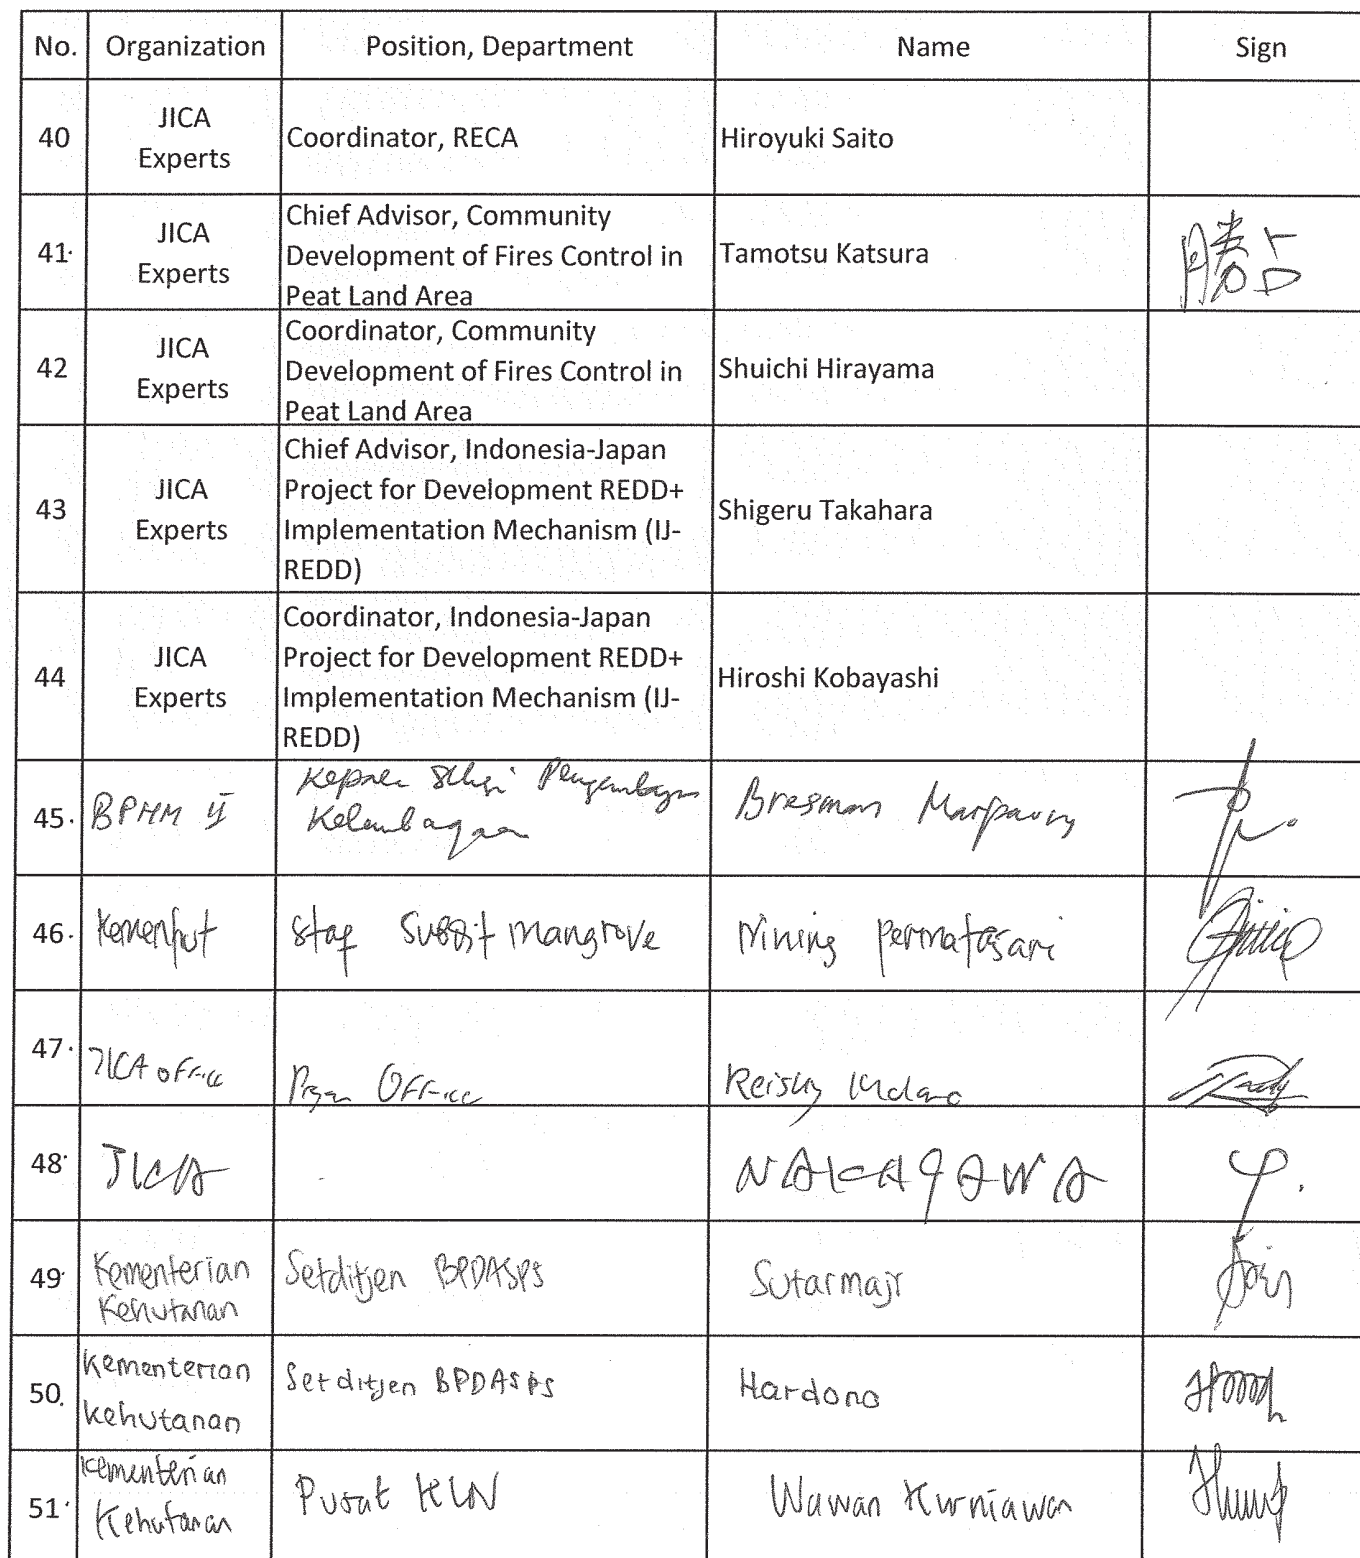 No. Organization Position, Department Name Sign
40 JICA Experts Coordinator, RECA Hiroyuki Saito
41 JICA Experts Chief Advisor, Community
Development of Fires Control in
Peat Land Area Tamotsu Katsura
42 JICA Experts Coordinator, Community
Development of Fires Control in
Peat Land Area Shuichi Hirayama
43 JICA Experts Chief Advisor, Indonesia-Japan
Project for Development REDD+
Implementation Mechanism (IJ-
REDD) Shigeru Takahara
44 JICA Experts Coordinator, Indonesia-Japan
Project for Development REDD+
Implementation Mechanism (IJ-
REDD) Hiroshi Kobayashi
45. BPHM II Seksi
Kelembagaan Bresman Marpaung
46. Kemenhut Staf Subdit Mangrove Nining permatasari
47. JICA Office Office
48 JICA NAKAGAWA
49 Kementerian
Kehutanan Setditjen BPDASPS Sutarmaji
50. Kementerian
Kehutanan Setditjen BPDASPS Hardono
51 Kementerian
Kehutanan Pusat KLN Wawan Kurniawan